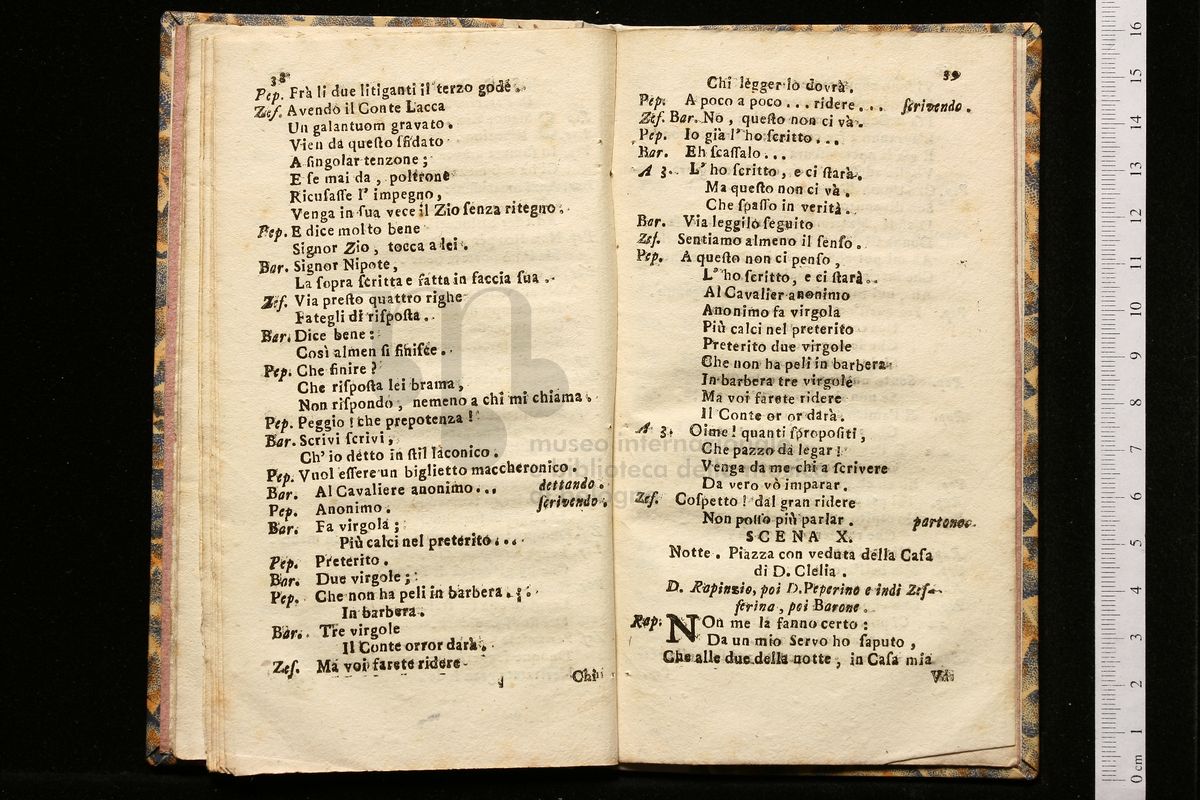 38
Pep. Frà li due litiganti il terzo gode.
Zeſ. Avendo il Conte Lacca
Un galantuom gravato.
Vien da queſto sfidato
A ſingolar tenzone;
E ſe mai da, poltrone
Ricuſaſſe l' impegno,
Venga in ſua vece il Zio ſenza ritegno.
Pep. E dice molto bene
Signor Zio, tocca a lei.
Bar. Signor Nipote,
La ſopra ſcritta e fatta in faccia ſua.
Zeſ. Via preſto quattro righe
Fategli di riſpoſta.
Bar. Dice bene:
Così almen ſi finiſce.
Pep. Che finire?
Che riſpoſta lei brama,
Non riſpondo, nemeno a chi mi chiama.
Pep. Peggio! che prepotenza!
Bar. Scrivi ſcrivi,
Ch' io detto in ſtil laconico.
Pep. Vuol eſſere un biglietto maccheronico.
Bar. Al Cavaliere anonimo... dettando.
Pep. Anonimo. ſcrivendo.
Bar. Fa virgola;
Più calci nel preterito...
Pep. Preterito.
Bar. Due virgole;
Pep. Che non ha peli in barbera.
In barbera.
Bar. Tre virgole
Il Conte orror darà.
Zeſ. Ma voi farete ridere
Chi
39
Chi legger lo dovrà.
Pep. A poco a poco... ridere... ſcrivendo.
Zeſ. Bar. No, queſto non ci và.
Pep. Io già l' ho ſcritto...
Bar. Eh ſcaſſalo...
A 3. L' ho ſcritto, e ci ſtarà.
Ma queſto non ci và.
Che ſpaſſo in verità.
Bar. Via leggilo ſeguito
Zeſ. Sentiamo almeno il ſenſo.
Pep. A queſto non ci penſo,
L' ho ſcritto, e ci ſtarà.
Al Cavalier anonimo
Anonimo fa virgola
Più calci nel preterito
Preterito due virgole
Che non ha peli in barbera
In barbera tre virgole
Ma voi farete ridere
Il Conte or or darà.
A 3. Oime! quanti ſpropoſiti,
Che pazzo da legar!
Venga da me chi a ſcrivere
Da vero vò imparar.
Zeſ. Coſpetto! dal gran ridere
Non poſſo più parlar. partono.
SCENA X.
Notte. Piazza con veduta della Caſa
di D. Clelia.
D. Rapinzio, poi D. Peperino e indi Zeſ-
ferina, poi Barone.
Rap. NOn me la fanno certo:
Da un mio Servo ho ſaputo,
Che alle due della notte, in Caſa mia
museo internazionale
e biblioteca della